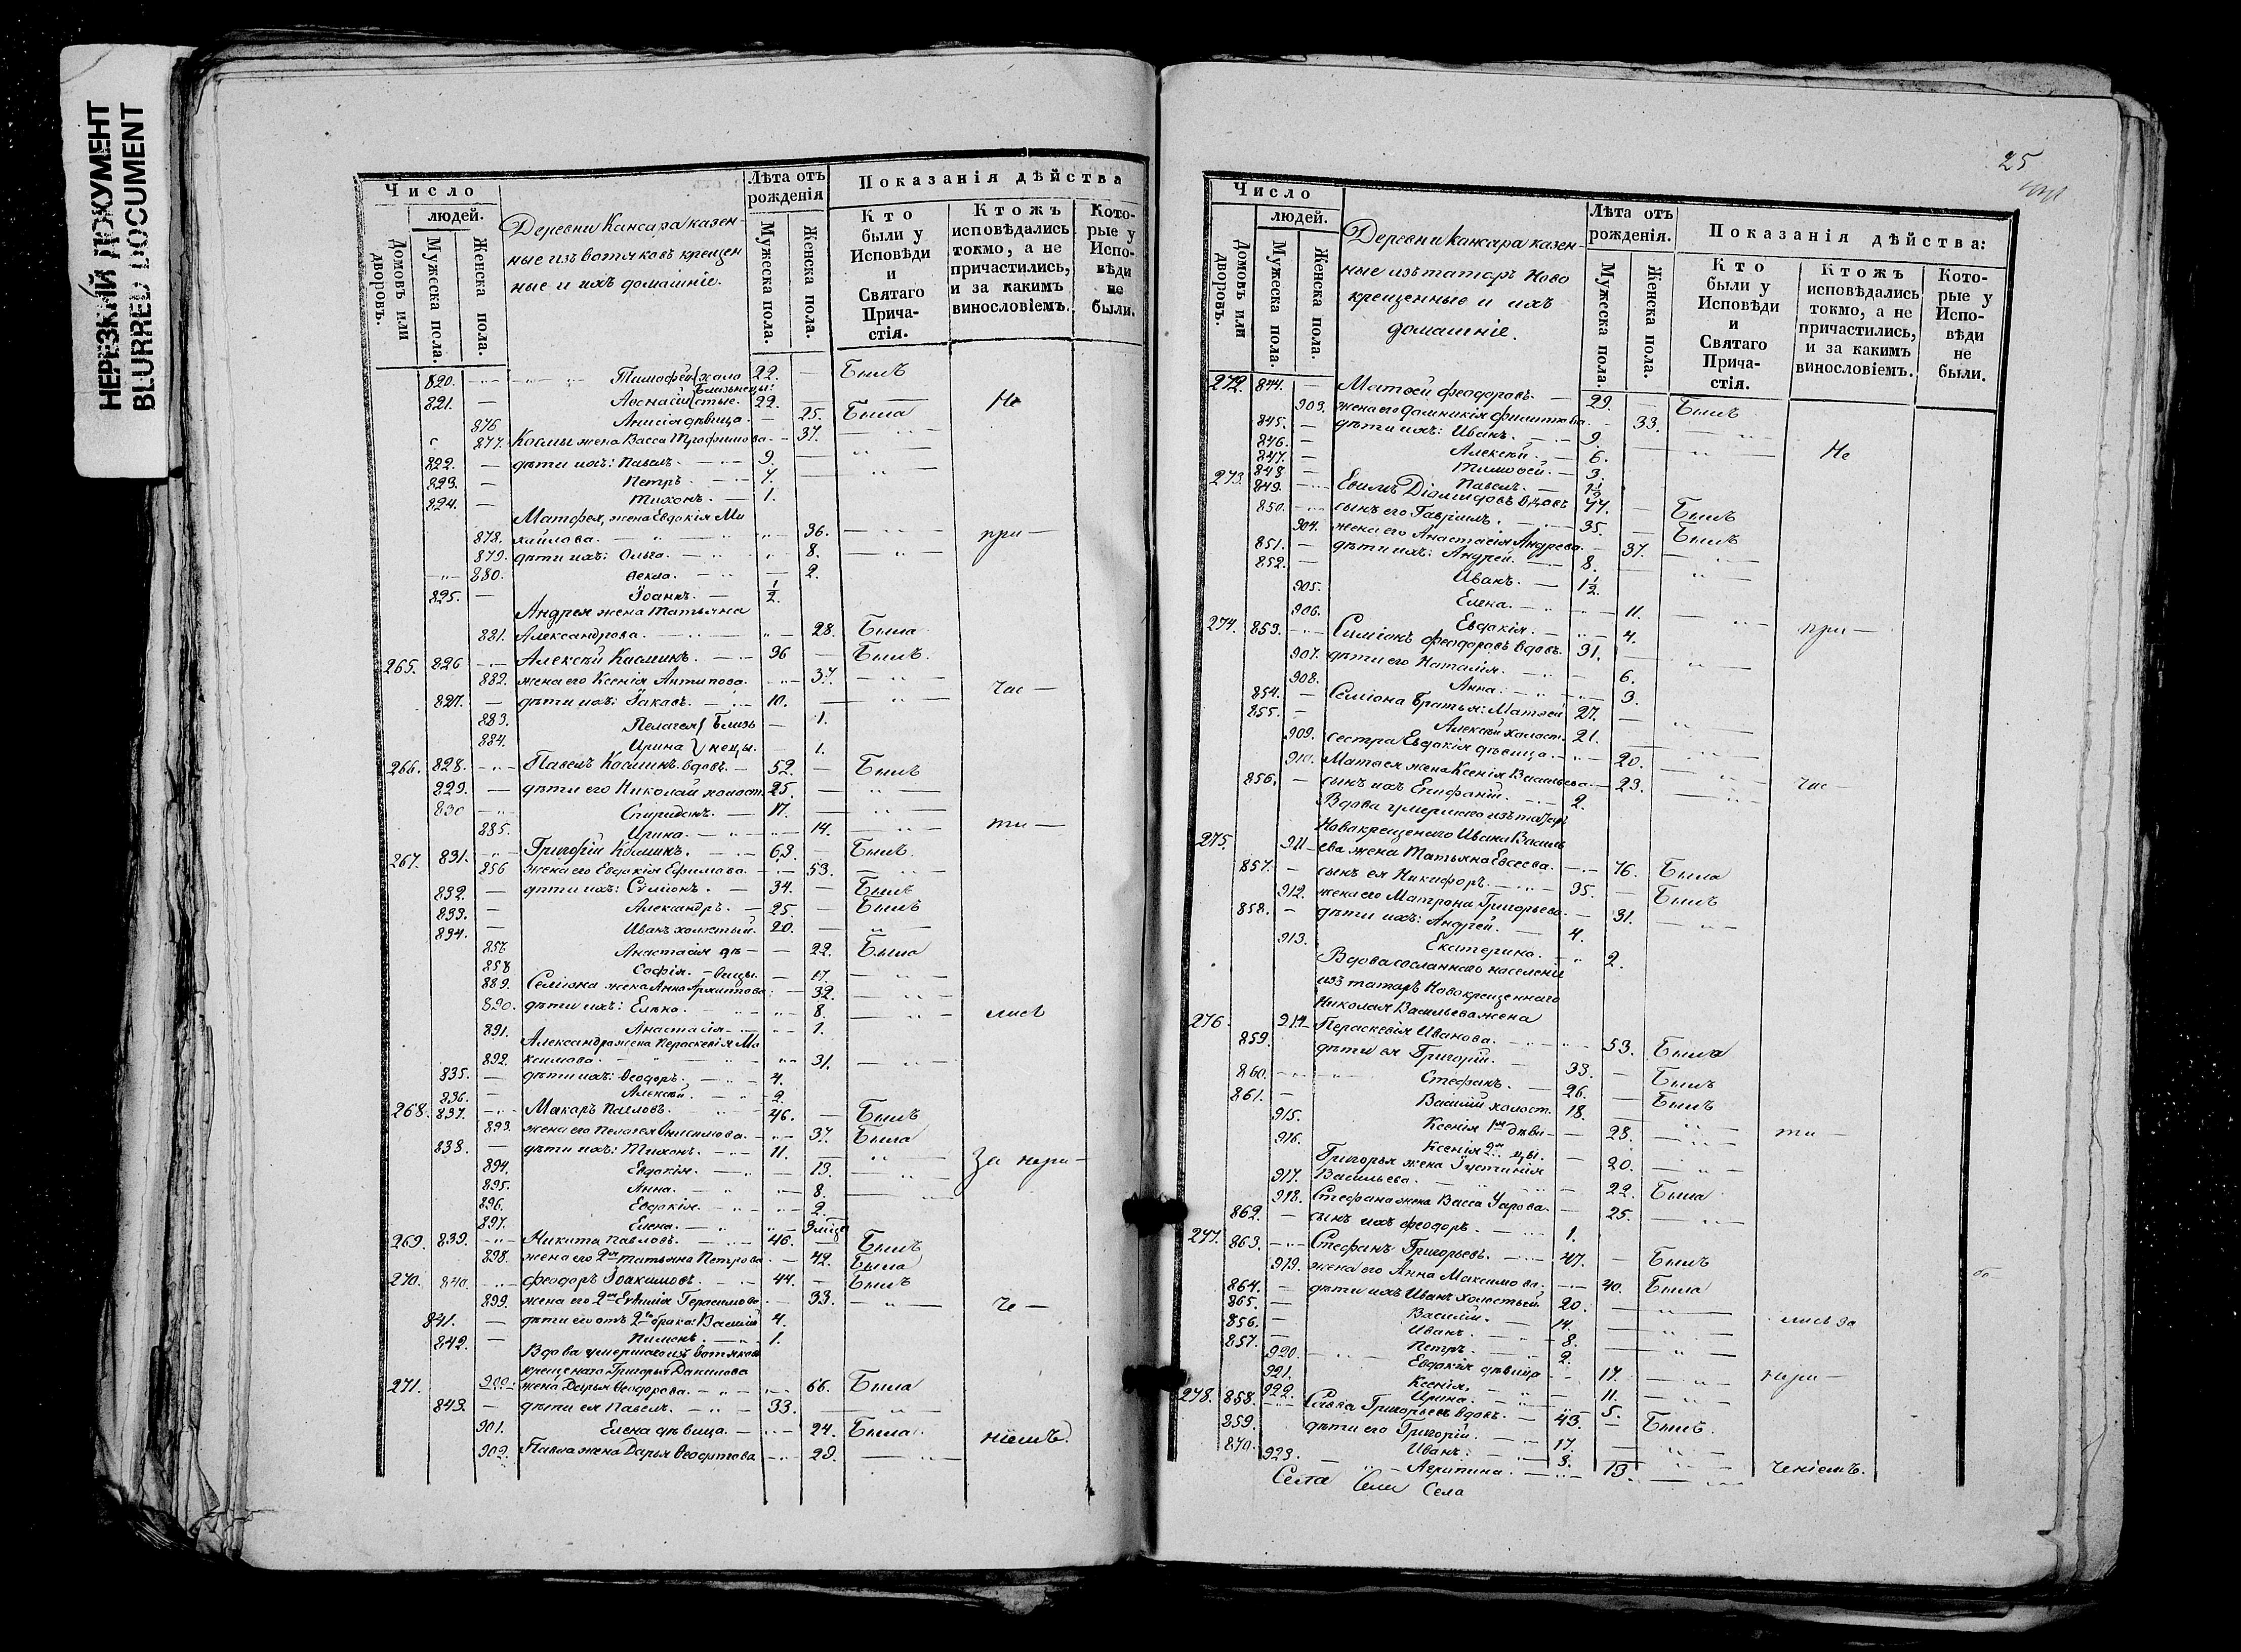 НЕРЕЗКИЙ ДОКУМЕНТ
BLURRED DOCUMENT
Число
людей.
Домовъ или дворовъ.
Мужеска пола.
Женска пола.
Деревни Кансара казен-
ные изъ вотяковъ крещен
ные и ихъ домашніе.
Лѣта отъ рожденія
Мужеска пола.
Женска пола.
Показанія дѣйства
Кто были у Исповѣди и Святаго Прича- стія.
Ктожъ исповѣдались токмо, а не причастились, и за какимъ винословіемъ.
Кото- рые у Испо- вѣди не были.
820. Тимофей холо 22. Былъ
Близнецы:
821. Аѳонасій стые. 22. Не
876 Анисія дѣвица. 25. Была
877. Космы жена Васса Трофимова 37.
822. дѣти ихъ: Павелъ. 9.
823. Петръ. 7.
824. Тихонъ. 1.
Матфея, жена Евдокія Ми
878. хайлова. 36. при
879. дѣти ихъ: Ольга. 8.
880. Ѳекла. 2.
825. Іоаннъ. 1/2.
Андрея жена Татьяна
881. Александрова. 28. Была
265. 826 Алексѣй Косминъ. 36 Былъ.
882. жена его Ксенія Антипова. 37. час
827. дѣти ихъ: Іаковъ. 10.
883. Пелагея Близь 1.
884. Ирина нецы. 1.
266. 828. Павелъ Косминъ вдовъ. 52. Былъ
829. дѣти его Николай холост. 25.
830 Спиридонъ. 17.
885. Ирина. 14. ти
267. 831. Григорій Косминъ. 63. Былъ.
856 жена его Евдокія Ефимова. 53.
832. дѣти ихъ: Симіонъ. 34. Былъ
833. Александръ. 25. Былъ
834. Иванъ холостый. 20.
857. Анастасія дѣ 22. Была
858 Софія. вицы. 17.
889. Семіона жена Анна Архиппова 32.
890. дѣти ихъ: Елена. 8. лись
891. Анастасія. 1.
Александра жена Пераскевія Ма
892. ксимова. 31.
835. дѣти ихъ: Ѳеодоръ. 4.
836. Алексѣй. 2.
268. 837. Макаръ Павловъ. 46. Былъ
893. жена его Пелагея Онисимова. 37. Была
838. дѣти ихъ: Тихонъ. 11.
894. Евдокія. 13. За нера
895. Анна. 8.
896. Евдокія. 2.
897. Елена. 3 мѣся
269. 839. Никита Павловъ. 46. Былъ
898. жена его 2я Татьяна Петрова 42. Была
270. 840. Феодоръ Іоакимовъ. 44. Былъ
899. жена его 2я Евѳимія Герасимова 33. че
841. дѣти его отъ 2го брака: Василій 4.
842. Пименъ. 1.
Вдова умершаго изъ вотяковъ
крещенаго Григорья Данилова
271. 900. жена Дарья Ѳеодорова. 66. Была
843. дѣти ея Павелъ. 33.
901. Елена дѣвица. 24. Была.
902. Павла жена Дарья 29. ніемъ.
25
Число
людей.
Домовъ или дворовъ.
Мужеска пола.
Женска пола.
Деревни Кансара казен-
ные изъ татаръ Ново
крещенные и ихъ
домашніе.
Лѣта отъ рожденія.
Мужеска пола.
Женска пола.
Показанія дѣйства:
Кто были у Исповѣди и Святаго Прича- стія.
Ктожъ исповѣдались токмо, а не причастились, и за какимъ винословіемъ.
Кото- рые у Испо- вѣди не были.
272. 844. Матѳей Феодоровъ. 29. Былъ
903. жена его Домникія Филиппова. 33.
845. дѣти ихъ: Иванъ. 9. Не
846. Алексѣй 6.
847. Тимоѳей. 3.
848 Павелъ. 1/2.
273. 849. Евимъ Діомидовъ вдовъ 77. Былъ
850. сынъ его Гавріилъ. 35. Былъ
904. жена его Анастасія Андрева. 37.
851. дѣти ихъ: Андрей. 8.
852. Иванъ. 1 1/2.
905. Елена. 11.
906. Евдокія. 4. при
274. 853. Симіонъ Феодоровъ вдовъ. 31.
907. дѣти его Наталія. 6.
908. Анна. 3.
854. Семіона братья: Матѳей 27.
855. Алексѣй холост. 21.
909. сестра Евдокія дѣвица. 20.
910. Матѳея жена Ксенія Васильева. 23. час
856. сынъ ихъ Епифаній. 2.
Вдова умершаго изъ татаръ
Новокрещенаго Ивана Василь
275. 911 ева жена Татьяна Евсеева. 76. Была
857. сынъ ея Никифоръ. 35. Былъ
912. жена его Матрона Григорьева. 31.
858. дѣти ихъ: Андрей. 4.
913. Екатерина. 2.
Вдова сосланнаго на селеніе
изъ татаръ Новокрещеннаго
Николая Васильева жена
276. 914 Пераскевія Иванова. 53. Была
859. дѣти ея Григорій. 33. Былъ
860. Стефанъ. 26. Былъ
861. Василій холост. 18.
915. Ксенія 1я дѣви 28. ти
916. Ксенія 2я цы. 20.
Григорья жена Іустинія
917. Васильева. 22. Была
918. Стефана жена Васса Уарова. 25.
862. сынъ ихъ Феодоръ. 1.
277. 863. Стефанъ Григорьевъ. 47. Былъ
919. жена его Анна Максимова. 40. Была
864. дѣти ихъ Иванъ холостый 20.
865. Василій. 14. лись за
856. Иванъ. 8.
857. Петръ. 2.
920. Евдокія дѣвица 17. нера
921. Ксенія. 11.
922. Ирина. 5.
278. 858. Савва Григорьевъ вдовъ. 43. Былъ
859. дѣти его Григорій. 17.
870. Иванъ. 3.
923. Агрипина. 13. ченіемъ.
Села Села